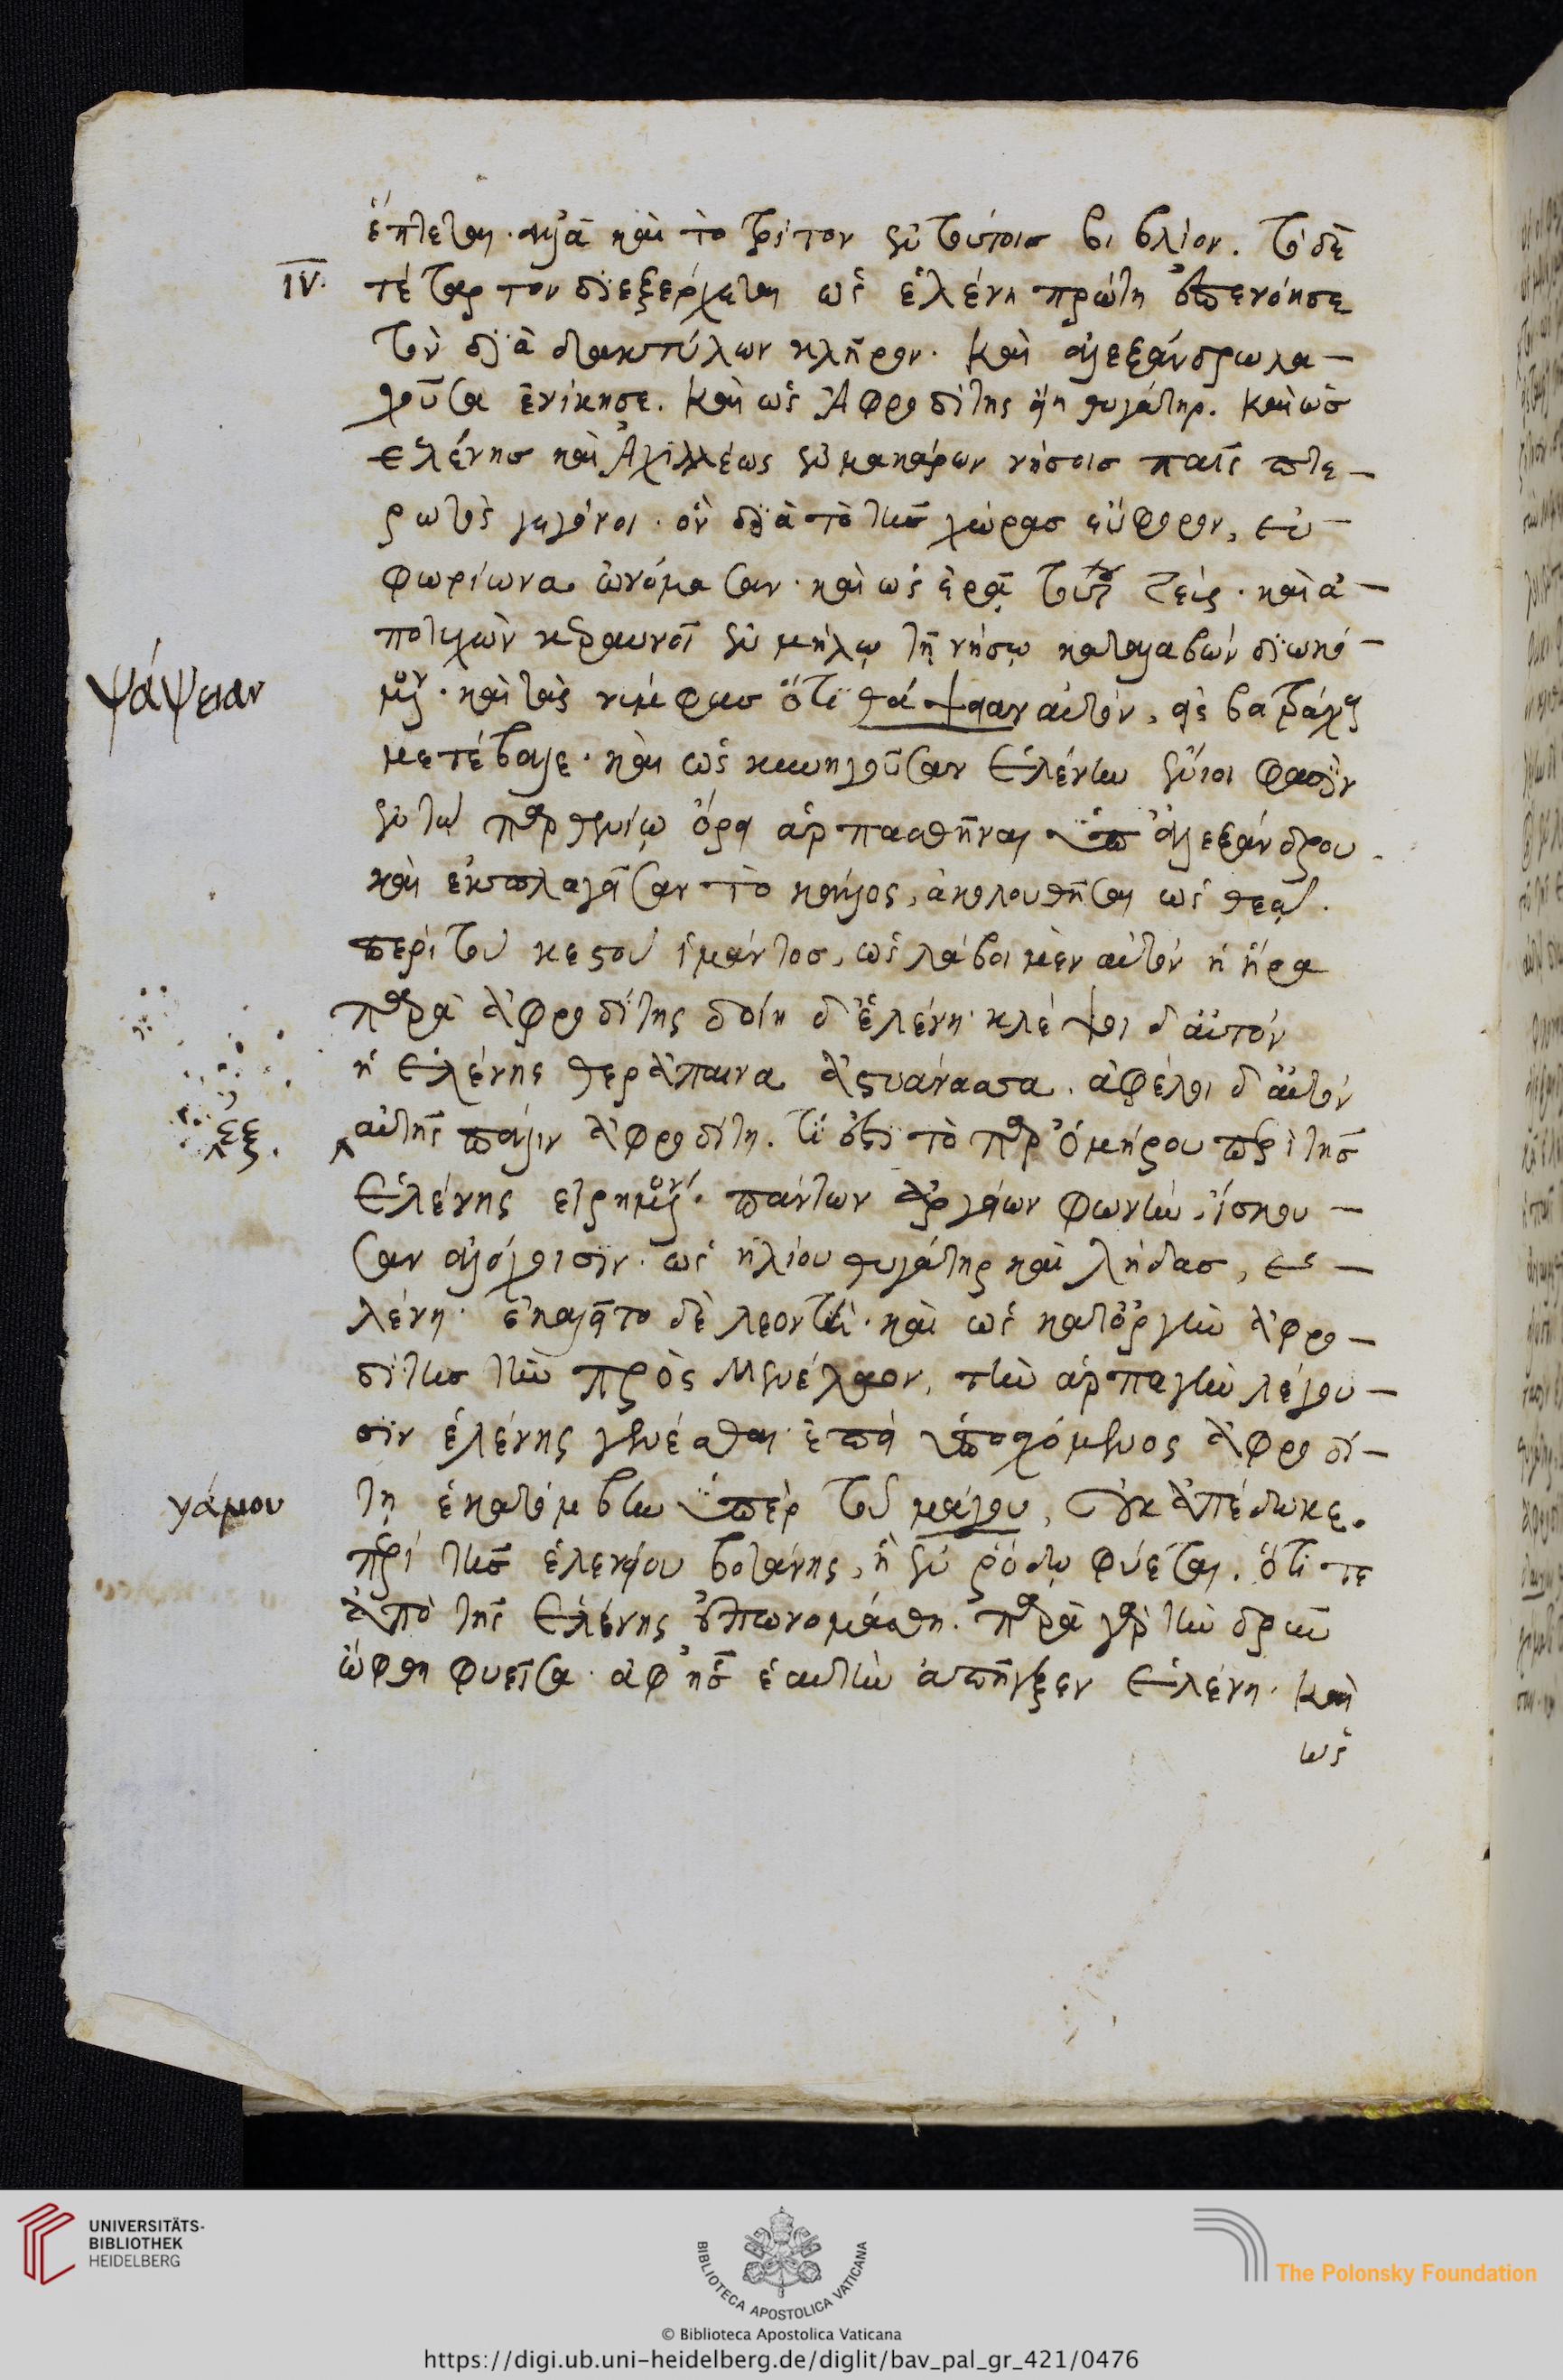 ἕπτεται. ἀλλὰ καὶ τὸ τρίτον ἐν τούτοις βιβλίον. τὸ δὲ
IV. τέταρτον διεξέρχεται ὡς ἑλένη πρώτη ἐπενόησε
τὸν διὰ δακτύλων κλῆρον. καὶ ἀλεξάνδρω λα–
χοῦσα ἐνίκησε. καὶ ὡς Ἀφροδίτης εἴη θυγάτηρ. καὶ ὡς
ἑλένης καὶ Ἀχιλλέως ἐν μακάρων νήσοις παῖς πτε–
ρωτὸς γεγόνοι. ὃν διὰ τὸ τῆς χώρας εὔφορον, εὐ–
φωρίωνα ὠνόμασαν. καὶ ὡς ἐρᾷ τούτου Ζεύς. καὶ ἀ–
ποτυχὼν κεραυνοῖ ἐν μήλῳ τῇ νήσῳ καταλαβὼν διωκό–
ψάψειαν
μενον. καὶ τὰς νύμφας ὅτι θάψειαν αὐτόν, εἰς βατράχους
μετέβαλε. καὶ ὡς κυνηγοῦσαν Ἑλένην ἔνιοι φασὶν
ἐν τῷ παρθενίῳ ὄρει ἁρπασθῆναι ὑπ' ἀλεξάνδρου.
καὶ ἐκπλαγεῖσαν τὸ κάλλος, ἀκολουθῆσαι ὡς θεῷ.
περὶ τοῦ κεστοῦ ἱμάντος, ὡς λάβοι μὲν αὐτὸν ἡ ἥρα
παρὰ ἀφροδίτης δοίη δ' ἑλένῃ. κλέψοι δ' αὐτὸν
ἡ Ἑλένης θεράπαινα ἀστυάνασσα. ἀφέλοι δ' αὐτὸν
ἐξ.
αὐτῆς πάλιν ἀφροδίτη. τί ἐστι τὸ παρ' ὁμήρου περὶ τῆς
Ἑλένης εἰρημένον. πάντων ἀργείων φωνὴν ἴσκου–
σαν ἀλόχοισιν. ὡς ἡλίου θυγάτηρ καὶ λήδας, ἑ–
λένη. ἐκαλεῖτο δὲ λεοντεί. καὶ ὡς κατ' ὀργὴν ἀφρο–
δίτης τὴν πρὸς Μενέλαον, τὴν ἁρπαγὴν λέγου–
σιν ἑλένης γενέσθαι. ἐπεὶ ὑποσχόμενος ἀφροδί–
γάμου
τῃ ἑκατόμβην ὑπὲρ τοῦ μάγου, οὐκ ἀπέδωκε.
περὶ τῆς ἑλενείου βοτάνης, ἣ ἐν ῥόδῳ φύεται. ὅτι τε
ἀπὸ τῆς Ἑλένης ἐπωνομάσθη. παρὰ γὰρ τὴν δρῦν
ὤφθη φυεῖσα. ἀφ' ἧς ἑαυτὴν ἀπῆγξεν Ἑλένη. καὶ
ὡς
UNIVERSITÄTS-
BIBLIOTHEK
HEIDELBERG
BIBLIOTECA APOSTOLICA VATICANA
The Polonsky Foundation
© Biblioteca Apostolica Vaticana
https://digi.ub.uni-heidelberg.de/diglit/bav_pal_gr_421/0476